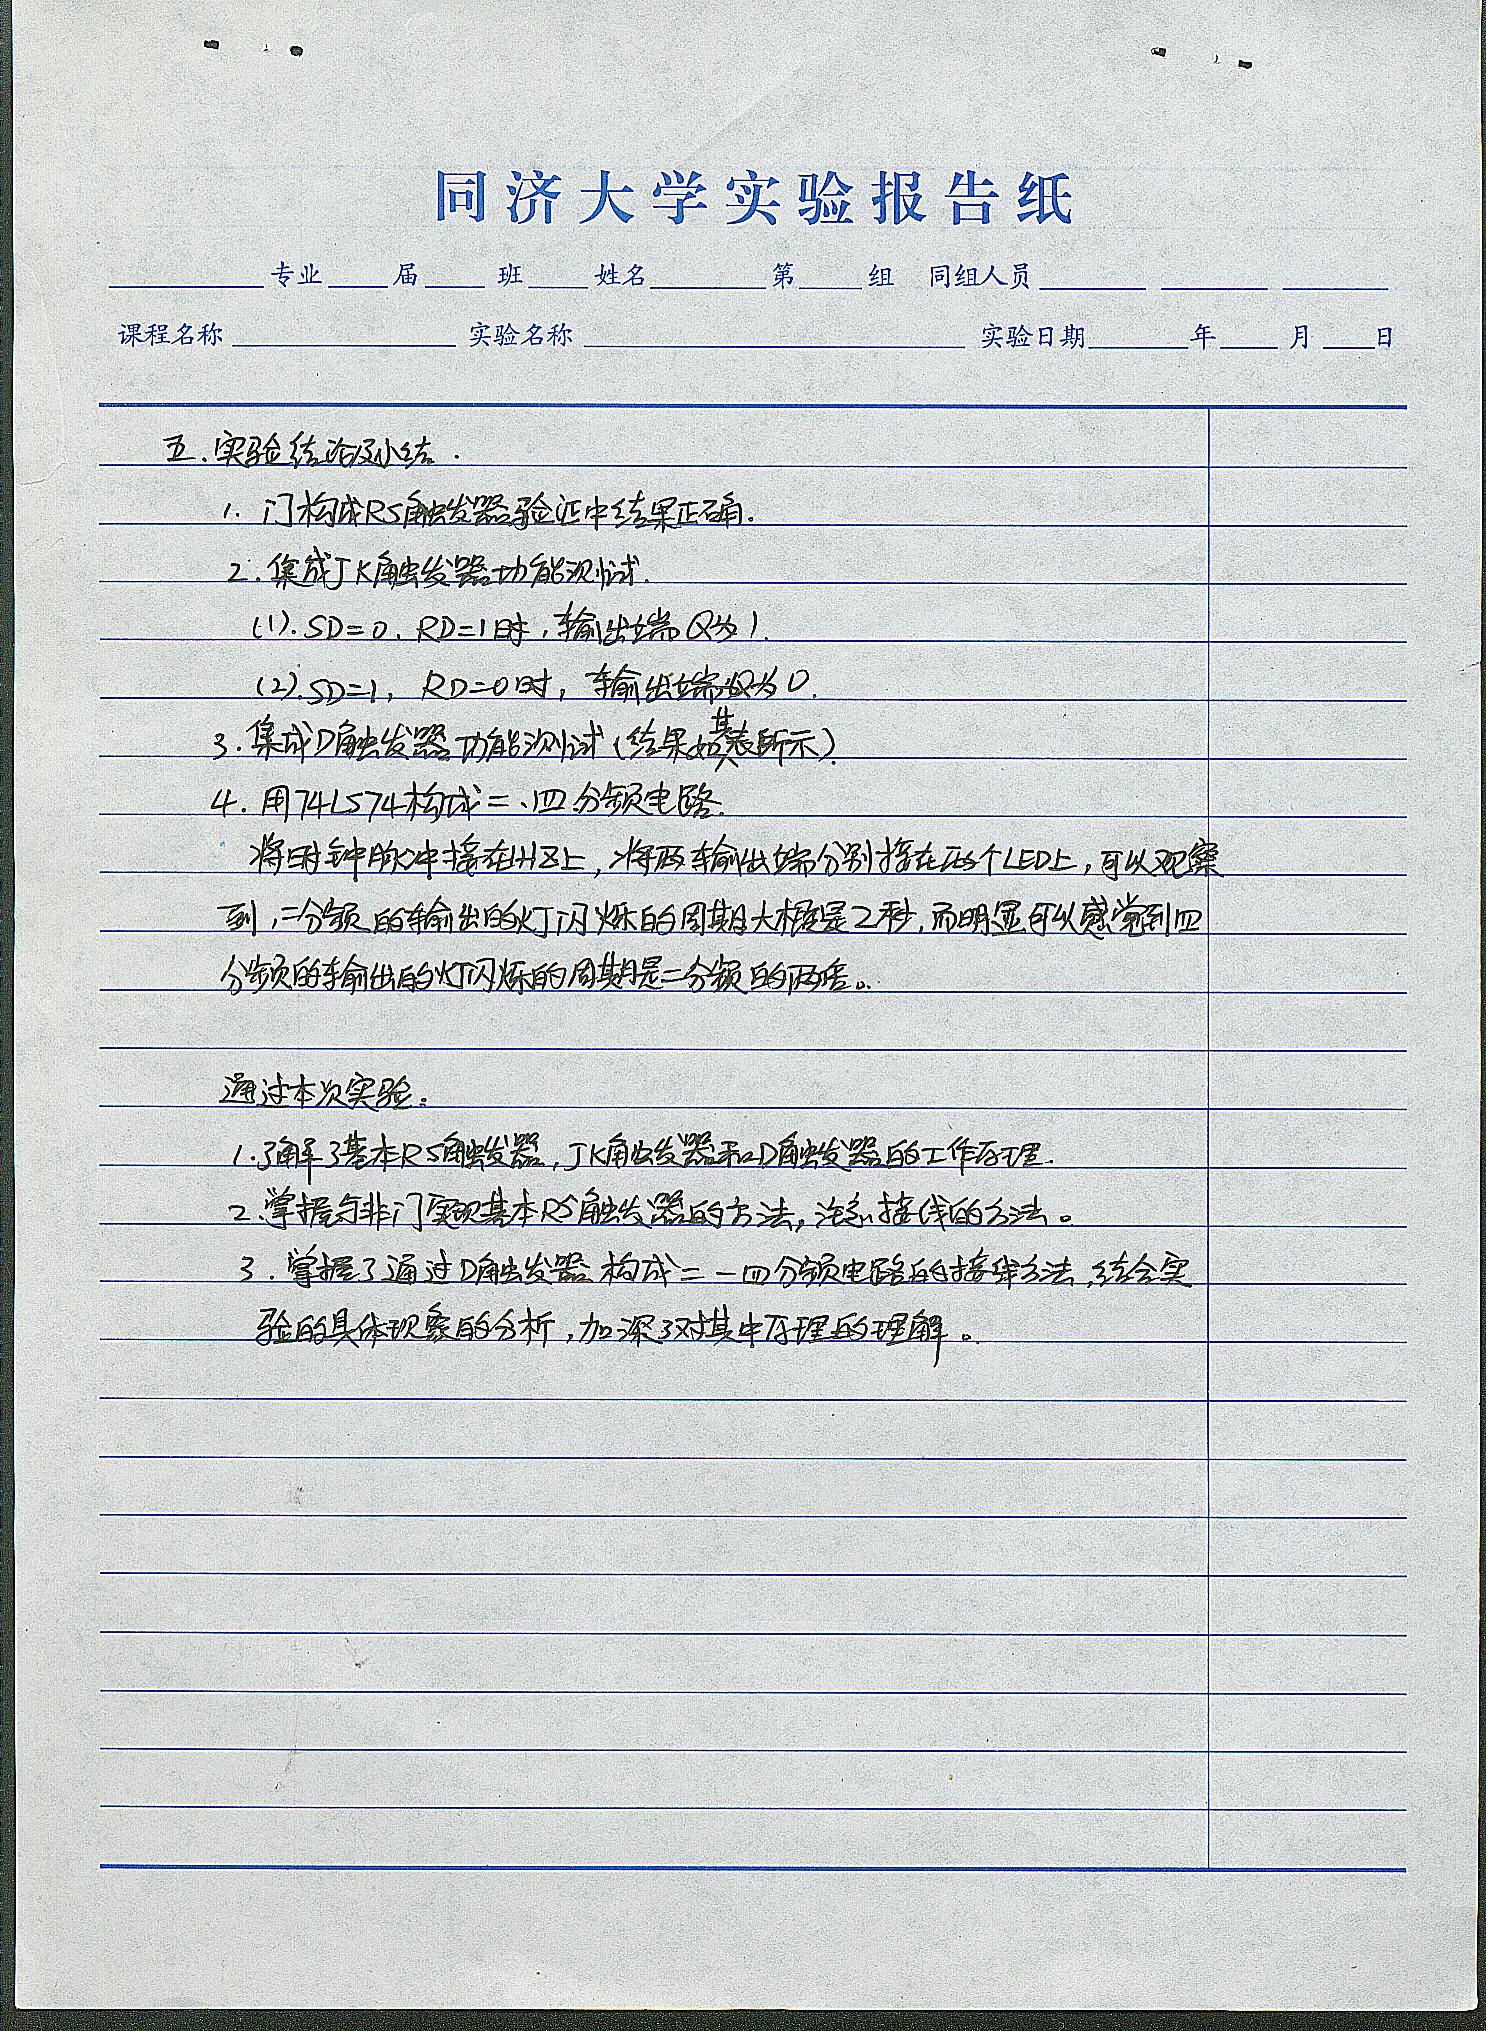 同济大学实验报告纸
专业 届 班 姓名 第 组 同组人员
课程名称 实验名称 实验日期 年 月 日
五.实验结论及小结.
1. 门构成RS触发器验证中结果正确.
2. 集成JK触发器功能测试.
(1). SD=0. RD=1时,输出端Q为1.
(2). SD=1, RD=0时, 输出端Q为0.
3. 集成D触发器功能测试(结果如其表所示).
4. 用74LS74构成二、四分频电路.
将时钟脉冲接在1HZ上,将两输出端分别接在两个LED上,可以观察
到,二分频的输出的灯闪烁的周期大概是2秒,而明显可以感觉到四
分频的输出的灯闪烁的周期是二分频的两倍。
通过本次实验。
1.了解了基本RS触发器,JK触发器和D触发器的工作原理.
2.掌握与非门实现基本RS触发器的方法,注意接线的方法。
3.掌握了通过D触发器构成二一四分频电路的接线方法,结合实
验的具体现象的分析,加深了对其中原理的理解。